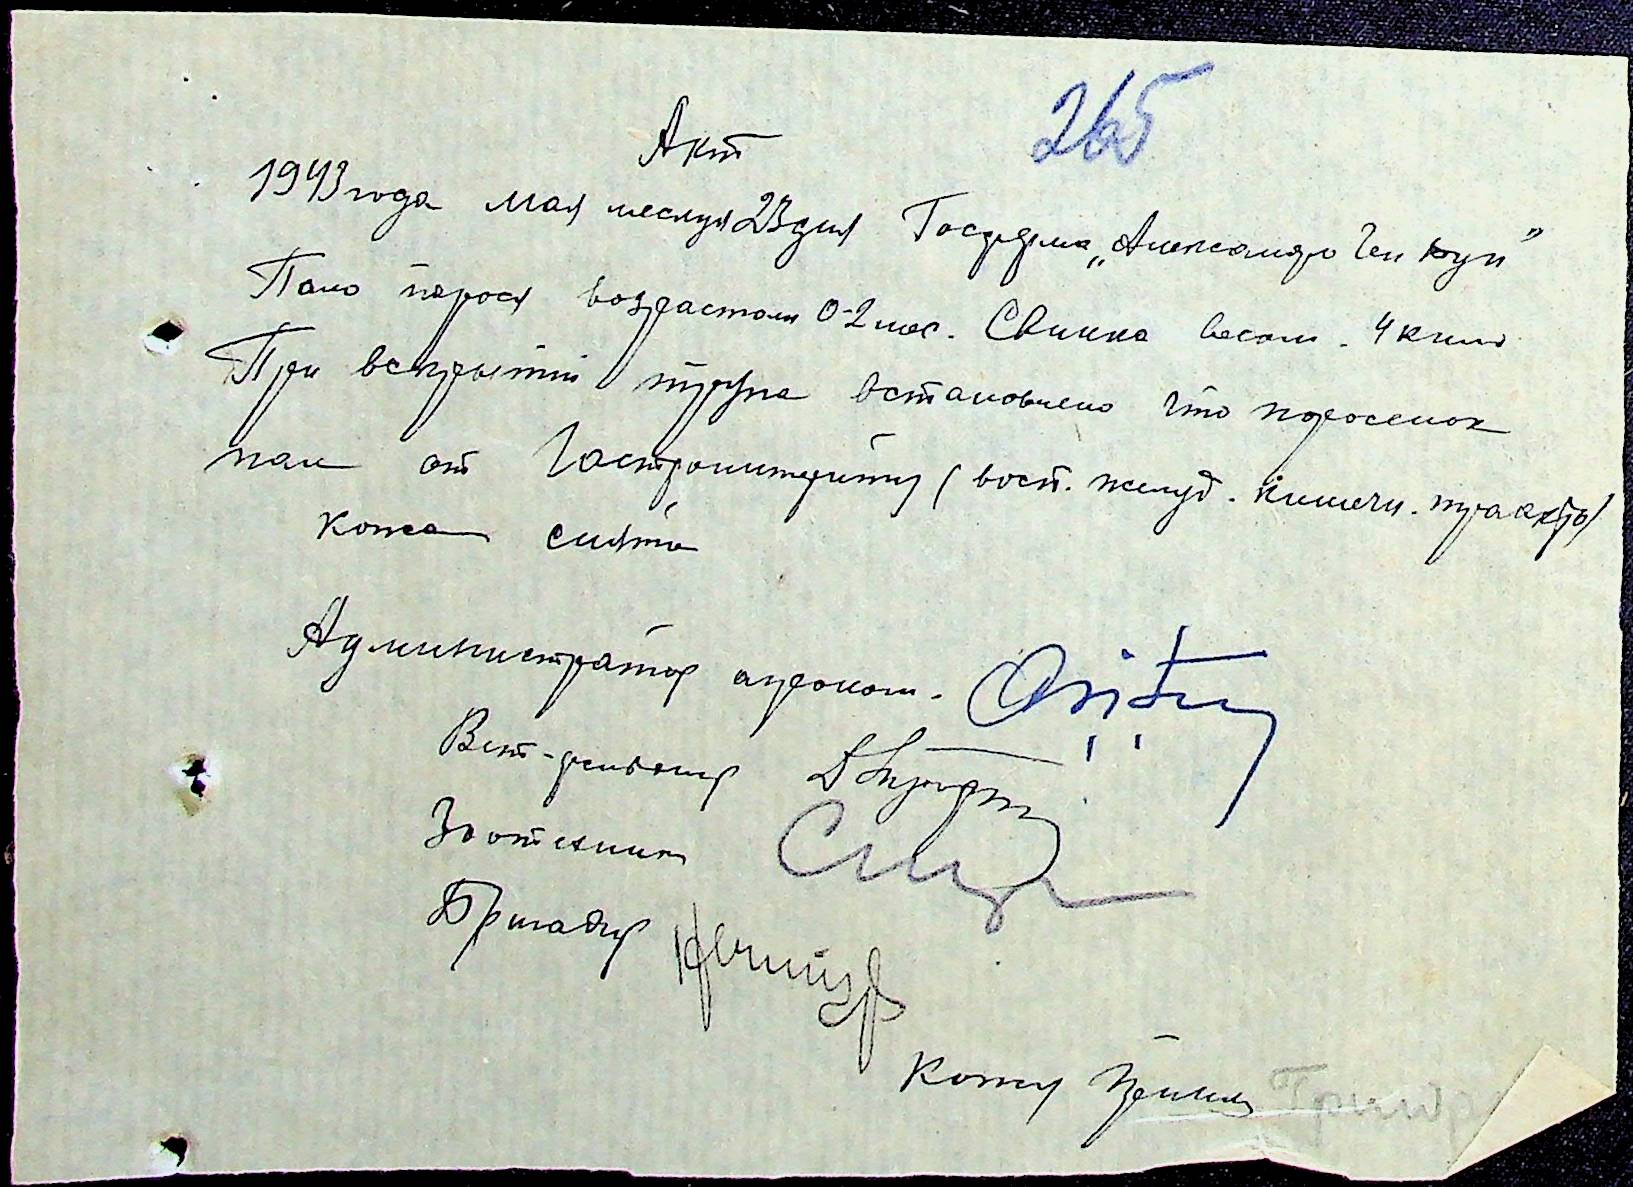 265
Акт
1943 года мая месяця 23 дня Госдвора „Александро
Пало порося возрастом 0-2 мес. Свинка весом. 4 кило
При вскрытии трупа встановлено что поросенок
пал от Гастроинтерита (восп. желуд. кишечн. тракта)
Кожа снята
Администратор агроном.
Вет-фельдшер
Зоотехник
Бригадир
Кожу Принял